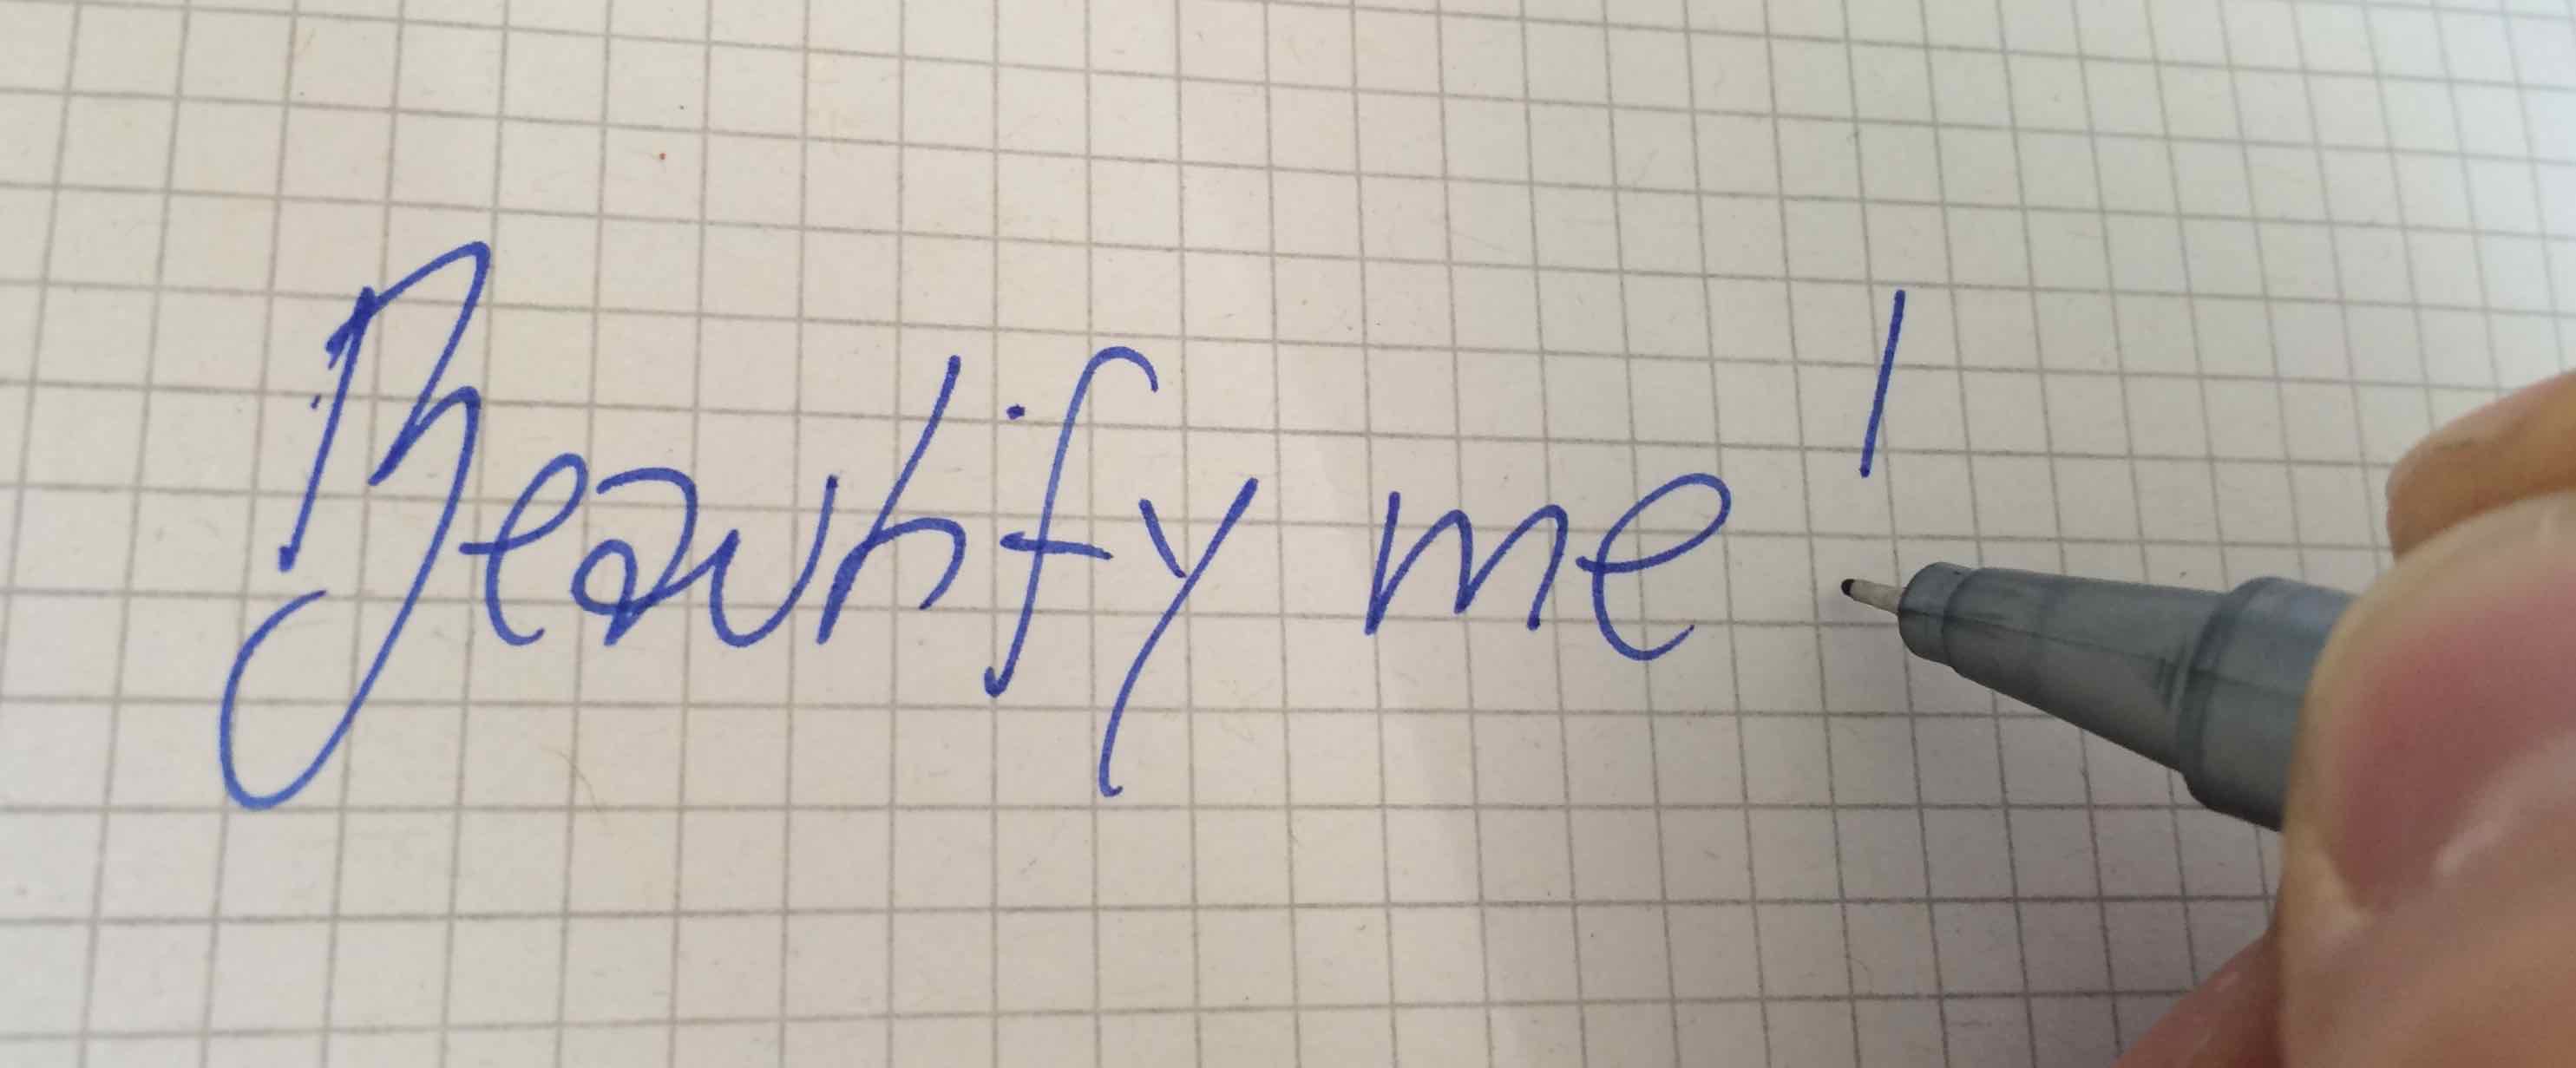 Beautify me!